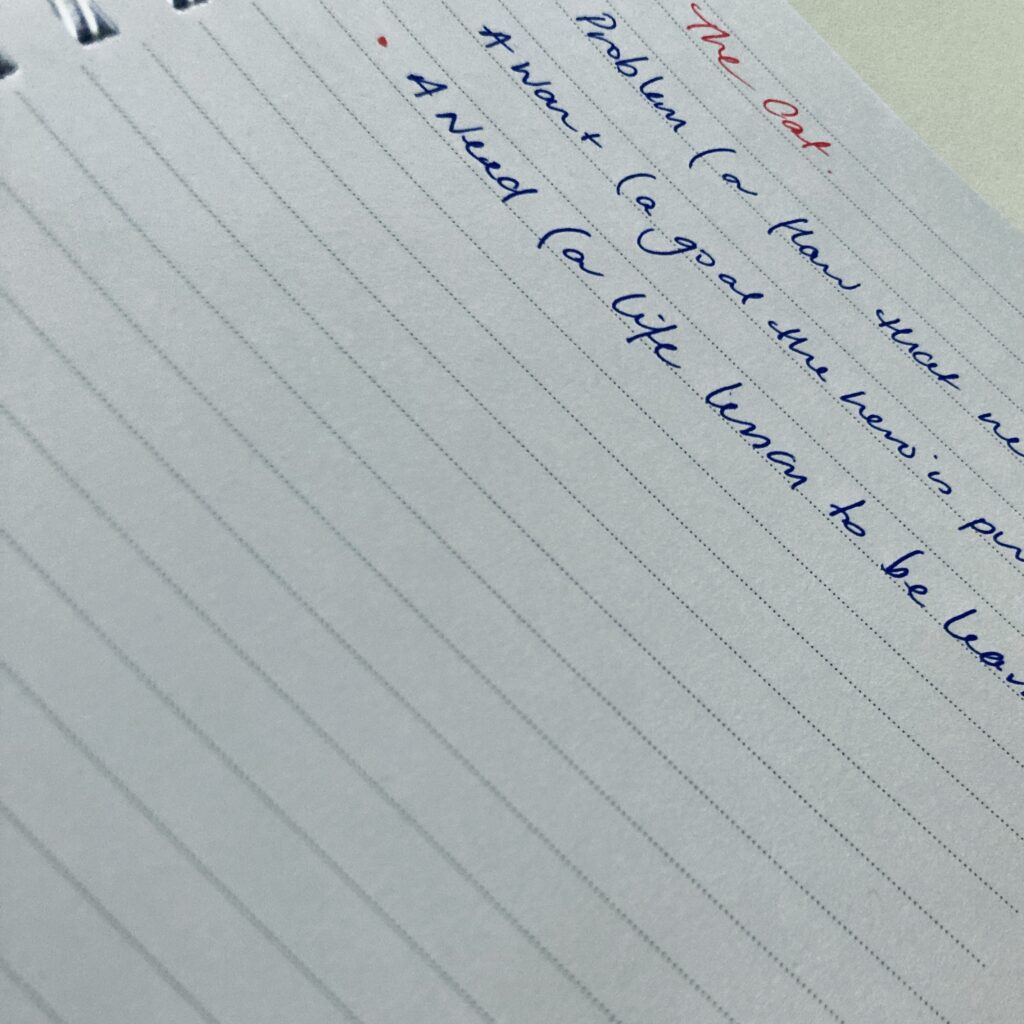 The Cat.
Problem (a flaw that ne
A Want (a goal the hero is pu
• A Need (a life lesson to be lear